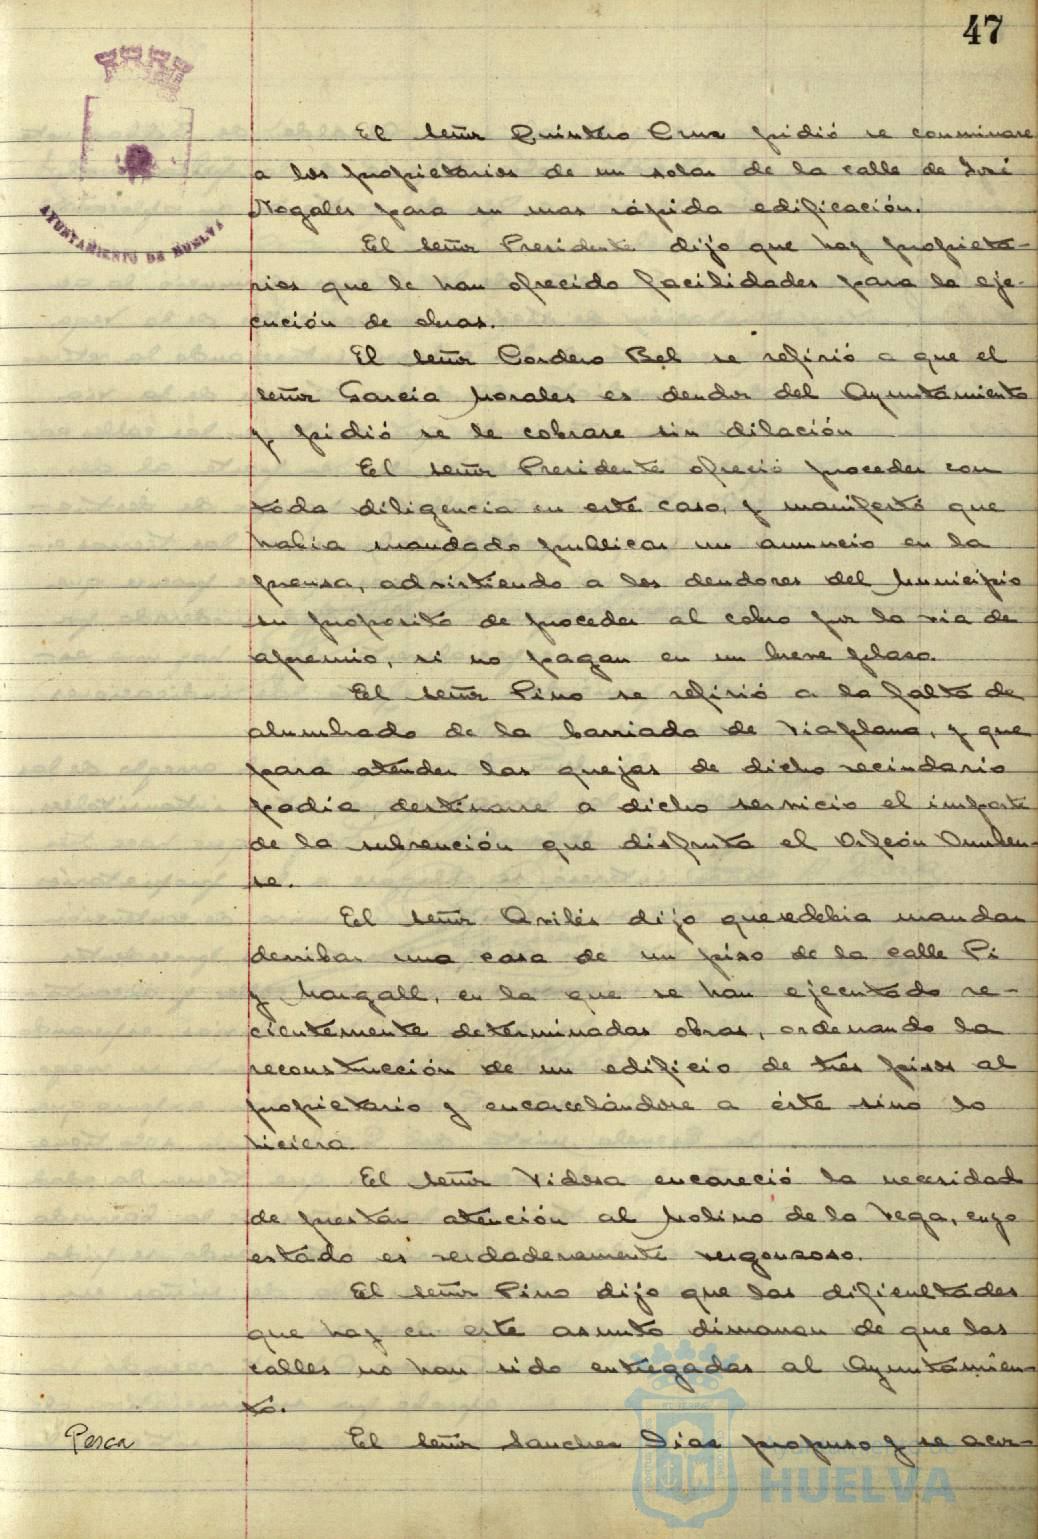 47
AYUNTAMIENTO DE HUELVA
El señor Quintero Cruz pidió se conminase
a los propietarios de un solar de la calle de José
Nogales para su mas rápida edificación.
El señor Presidente dijo que hay propieta-
rios que le han ofrecido facilidades para la eje-
cución de obras.
El señor Cordero Bel se refirió a que el
señor Garcia Morales es deudor del Ayuntamiento
y pidió se le cobrase sin dilación
El señor Presidente ofreció proceder con
toda diligencia en este caso, y manifestó que
habia mandado publicar un anuncio en la
prensa, advirtiendo a los deudores del Municipio
su proposito de proceder al cobro por la via de
apremio, si no pagan en un breve plazo.
El señor Pino se refirió a la falta de
alumbrado de la barriada de Viaplana, y que
para atender las quejas de dicho vecindario
podia destinarse a dicho servicio el importe
de la subvención que disfruta el Orfeón Onuben-
se.
El señor Avilés dijo que se debia mandar
derribar una casa de un piso de la calle Pi
y Margall, en la que se han ejecutado re-
cientemente determinadas obras, ordenando la
reconstrucción de un edificio de tres pisos al
propietario y encarcelándose a éste sino lo
hiciera.
El señor Vidosa encareció la necesidad
de prestar atención al Molino de la Vega, cuyo
estado es verdaderamente vergonzoso.
El señor Pino dijo que las dificultades
que hay en este asunto dimanan de que las
calles no han sido entregadas al Ayuntamien-
to.
Pesca
El señor Sanchez Diaz propuso y se acor-
HUELVA